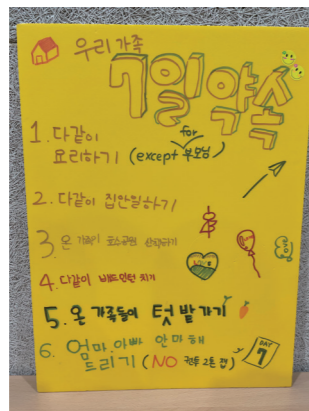 우리가족
7일약속
1. 다같이
for
요리하기 (except 부모님)
2. 다같이 집안일하기
3. 온 가족이 호수공원 산책하기
4. 다같이 배드민턴 치기
5. 온 가족들이 텃밭가기
6. 엄마, 아빠 안마해
드리기 (NO
DAY
7